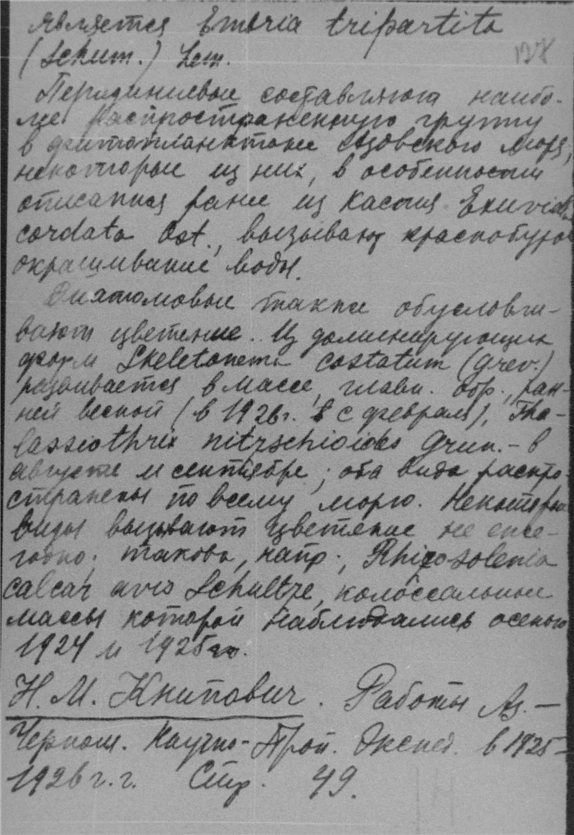 является Ebria tripartita
(Schum.) Lem.
128
Перидиниевые составляют наибо-
лее распространенную группу
в фитопланктоне Азовского моря;
некоторые из них, в особенности
описанная ранее из Каспия Exuviella
cordata Ost., вызывают краснобурое
окрашивание воды.
Диатомовые также обусловли-
вают цветение. Из доминирующих
форм Skeletonema costatum (Grev.)
развивается в массе, главн. обр., ран-
ней весной (в 1926 г. с февраля), Tha-
lassiothrix nitzschioides Grun. - в
августе и сентябре; оба вида распро-
странены по всему морю. Некоторые
виды вызывают цветение не еже-
годно; такова, напр., Rhizosolenia
calcar avis Schultze, колоссальные
массы которой наблюдались осенью
1924 и 1925 гг.
Н. М. Книпович. Работы Аз.-
Черном. Научно-Пром. Экспед. в 1925-
1926 г.г. Стр. 49.